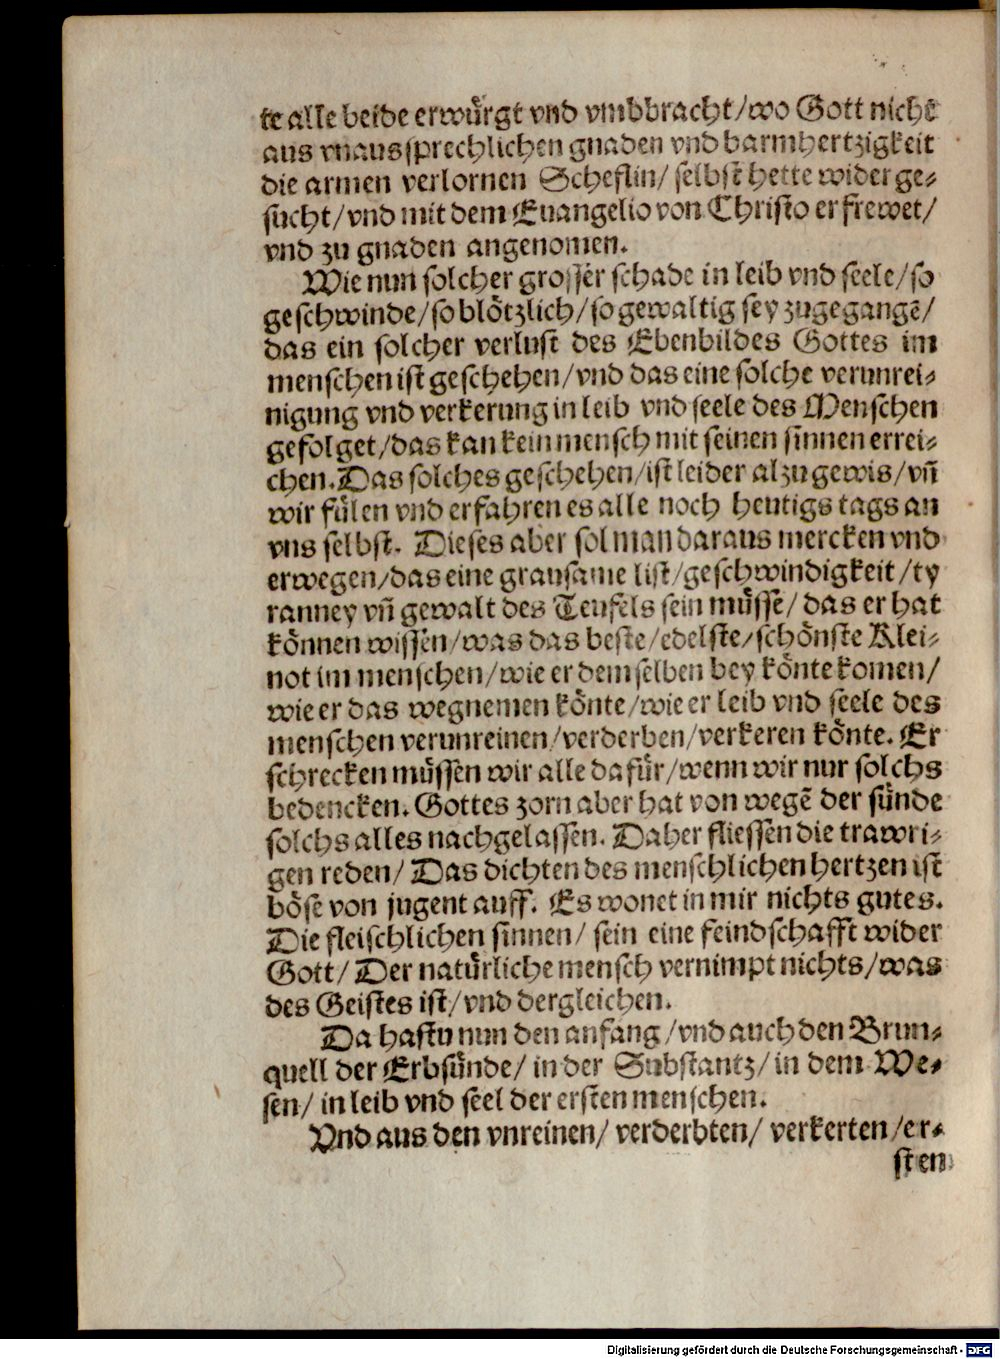 te alle beide erwürgt vnd vmbbracht/wo Gott nicht
aus vnaussprechlichen gnaden vnd barmhertzigkeit
die armen verlornen Scheflin/ selbst hette wider ge-
sucht/vnd mit dem Euangelio von Christo erfrewet/
vnd zu gnaden angenomen.
Wie nun solcher grosser schade in leib vnd seele/so
geschwinde/so blötzlich/so gewaltig sey zugegangē/
das ein solcher verlust des Ebenbildes Gottes im
menschen ist geschehen/vnd das eine solche verunrei-
nigung vnd verkerung in leib vnd seele des Menschen
gefolget/das kan kein mensch mit seinen sinnen errei-
chen. Das solches geschehen/ist leider alzu gewis/vñ
wir fülen vnd erfahren es alle noch heutigs tags an
vns selbst. Dieses aber sol man daraus mercken vnd
erwegen/das eine grausame list/geschwindigkeit/ty
ranney vñ gewalt des Teufels sein müsse/ das er hat
können wissen/was das beste/edelste/schönste Klei-
not im menschen/wie er demselben bey könte komen/
wie er das wegnemen könte/wie er leib vnd seele des
menschen verunreinen/verderben/verkeren könte. Er
schrecken müssen wir alle dafür/wenn wir nur solchs
bedencken. Gottes zorn aber hat von wegē der sünde
solchs alles nachgelassen. Daher fliessen die trawri-
gen reden/ Das dichten des menschlichen hertzen ist
böse von jugent auff. Es wonet in mir nichts gutes.
Die fleischlichen sinnen/ sein eine feindschafft wider
Gott/ Der natürliche mensch vernimpt nichts/was
des Geistes ist/vnd dergleichen.
Da hastu nun den anfang/vnd auch den Brun-
quell der Erbsünde/ in der Substantz/in dem We-
sen/ in leib vnd seel der ersten menschen.
Vnd aus den vnreinen/ verderbten/ verkerten/er-
sten
Digitalisierung gefördert durch die Deutsche Forschungsgemeinschaft - DFG